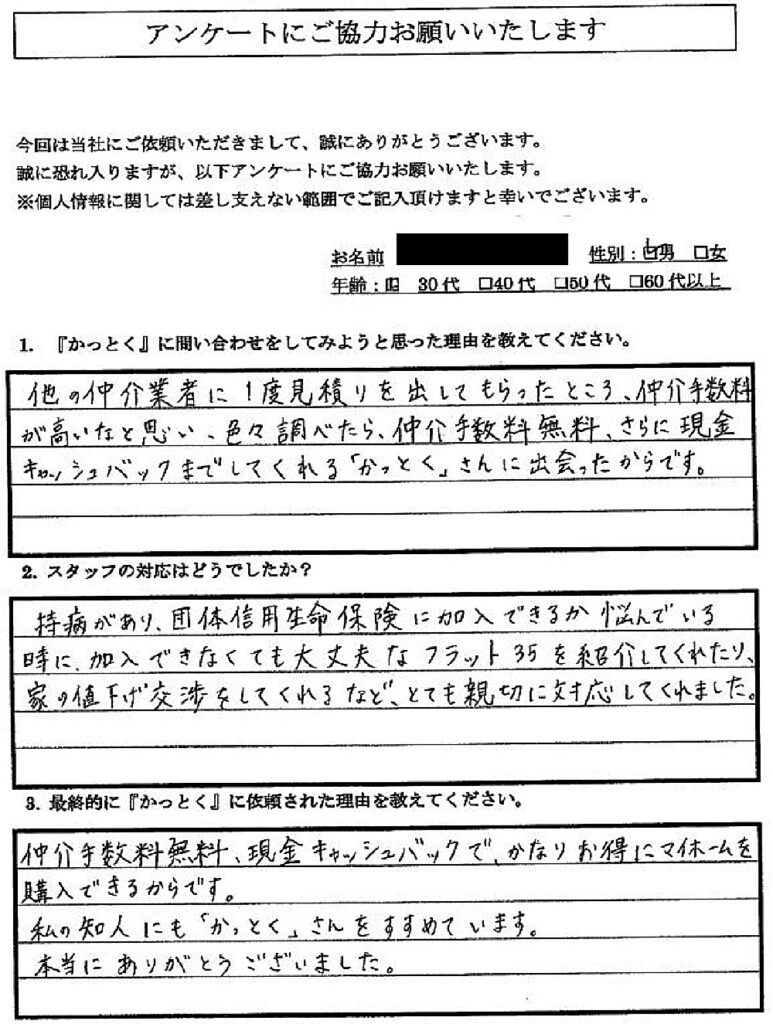 アンケートにご協力お願いいたします
今回は当社にご依頼いただきまして、誠にありがとうございます。
誠に恐れ入りますが、以下アンケートにご協力お願いいたします。
※個人情報に関しては差し支えない範囲でご記入頂けますと幸いでございます。
お名前 性別：☑男 □女
年齢：☑ 30代 □40代 □50代 □60代以上
1. 『かっとく』に問い合わせをしてみようと思った理由を教えてください。
他の仲介業者に1度見積りを出してもらったところ、仲介手数料
が高いなと思い、色々調べたら、仲介手数料無料、さらに現金
キャッシュバックまでしてくれる「かっとく」さんに出会ったからです。
2. スタッフの対応はどうでしたか？
持病があり、団体信用生命保険に加入できるか悩んでいる
時に、加入できなくても大丈夫なフラット35を紹介してくれたり、
家の値下げ交渉をしてくれるなど、とても親切に対応してくれました。
3. 最終的に『かっとく』に依頼された理由を教えてください。
仲介手数料無料、現金キャッシュバックで、かなりお得にマイホームを
購入できるからです。
私の知人にも「かっとく」さんをすすめています。
本当にありがとうございました。